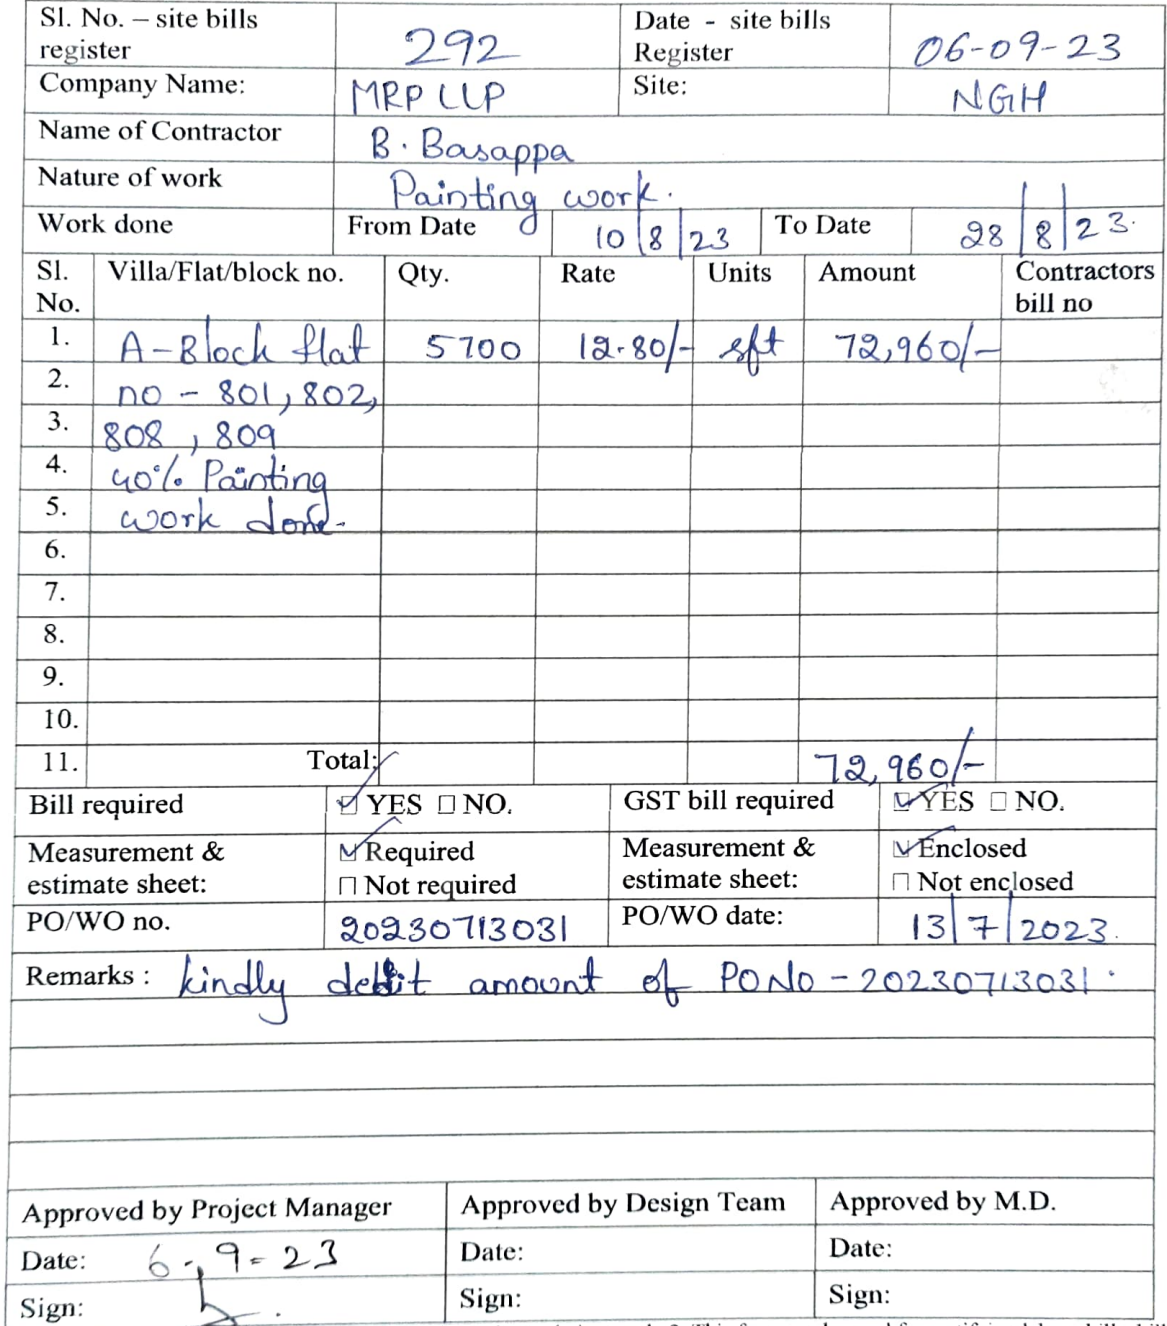 Sl. No. – site bills register 292 Date - site bills Register 06-09-23
Company Name: MRP LLP Site: NGH
Name of Contractor B. Basappa
Nature of work Painting work.
Work done From Date 10/8/23 To Date 28/8/23.
Sl. No. Villa/Flat/block no. Qty. Rate Units Amount Contractors bill no
1. A-Block flat 5700 12.80/- sft 72,960/-
2. no - 801, 802,
3. 808, 809
4. 40% Painting
5. work done.
6.
7.
8.
9.
10.
11. Total: 72,960/-
Bill required ☑ YES ☐ NO. GST bill required ☑ YES ☐ NO.
Measurement & estimate sheet: ☑ Required ☐ Not required Measurement & estimate sheet: ☑ Enclosed ☐ Not enclosed
PO/WO no. 20230713031 PO/WO date: 13/7/2023.
Remarks : kindly debit amount of PO No - 20230713031.
Approved by Project Manager Approved by Design Team Approved by M.D.
Date: 6-9-23 Date: Date:
Sign: Sign: Sign: